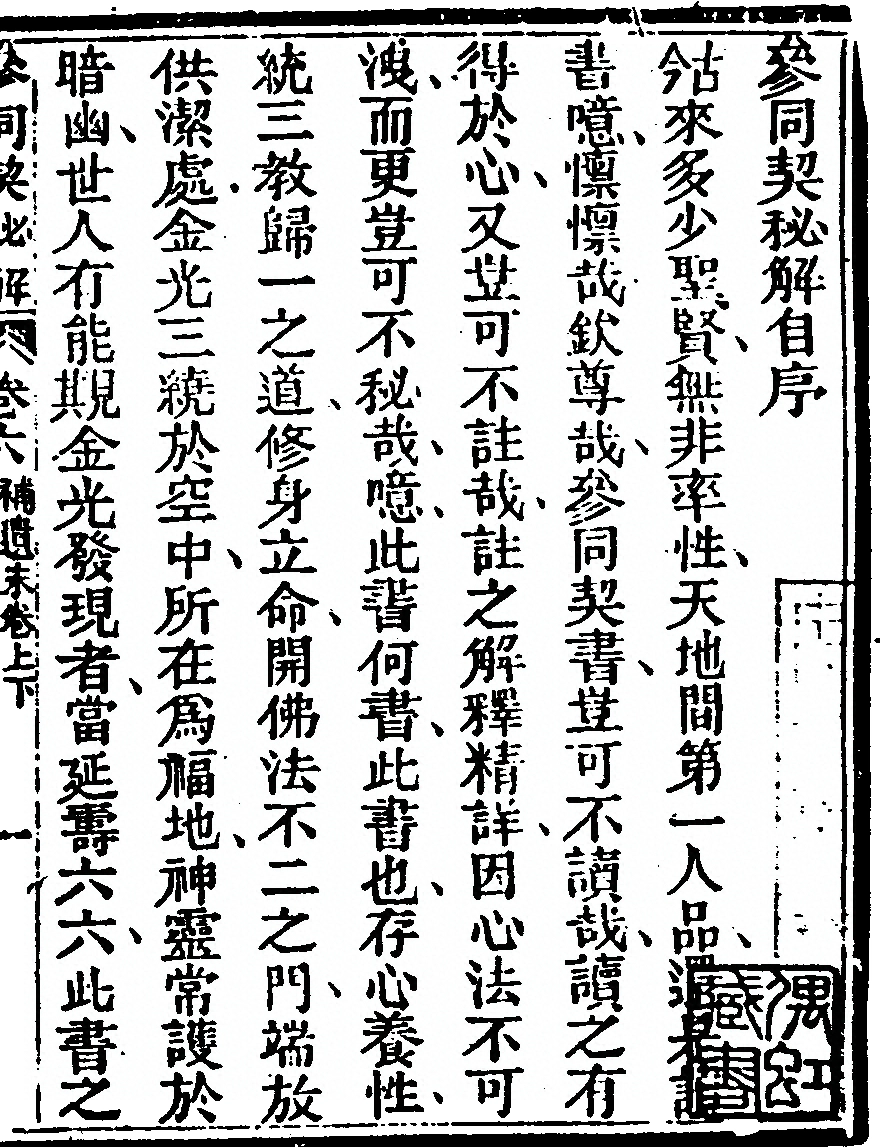 參同契秘解自序
估來多少聖賢、無非率性、天地間第一人品、還是讀
書、噫懍懍哉欽尊哉、參同契書、豈可不讀哉、讀之有
得於心、又豈可不註哉、註之解釋精詳、因心法不可
洩、而更豈可不秘哉、噫、此書何書、此書也、存心養性、
統三教歸一之道、修身立命、開佛法不二之門、端放
供潔處、金光三繞於空中、所在為福地、神靈常護於
暗幽、世人有能覩金光發現者、當延壽六六、此書之
參同契秘解 卷六 補遺末卷上下 一
偶虹藏書